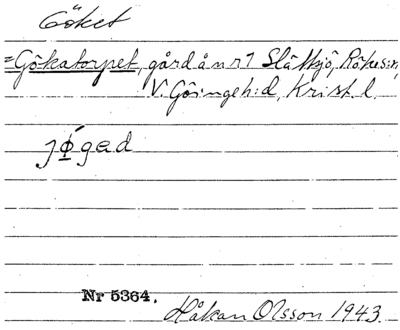 Göket
=Gökatorpet, gård å nr 1 Slättsjö, Röke s:n,
V. Göinge h:d, Krist. l.
jǿgəd
Nr 5364.
Håkan Olsson 1943